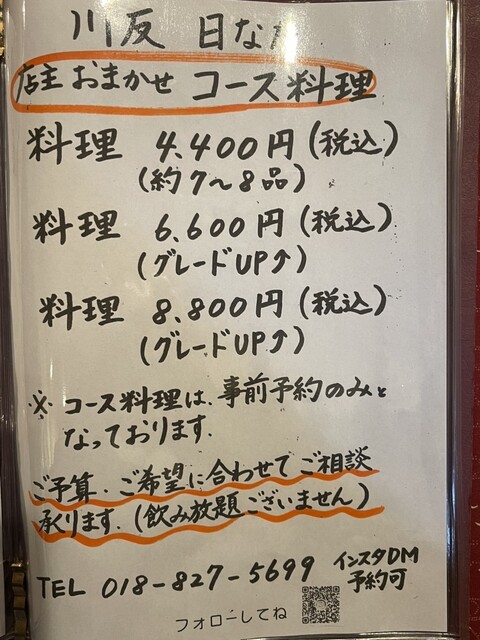 川反 日なた
店主 おまかせ コース料理
料理 4.400円(税込)
(約7〜8品)
料理 6.600円(税込)
(グレードUP↑)
料理 8.800円(税込)
(グレードUP↑)
※ コース料理は、事前予約のみと
なっております。
ご予算、ご希望に合わせてご相談
承ります。(飲み放題ございません)
TEL 018-827-5699 インスタDM
予約可
フォローしてね